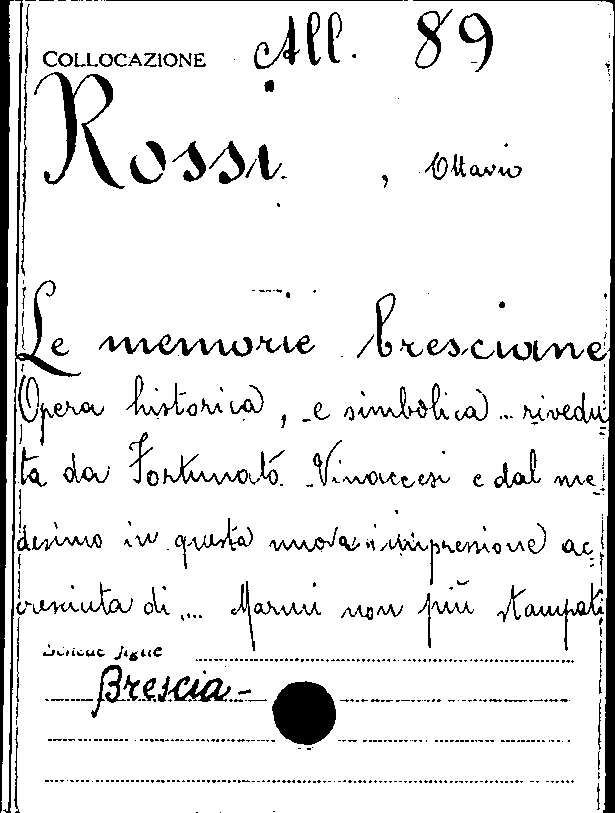 COLLOCAZIONE All. 89
Rossi, Ottavio
Le memorie bresciane
Opera historica, e simbolica... rivedu
ta da Fortunato Vinaccesi e dal me
desimo in questa nuova impressione ac
cresciuta di.... Marmi non più stampati
Schede figlie
Brescia-